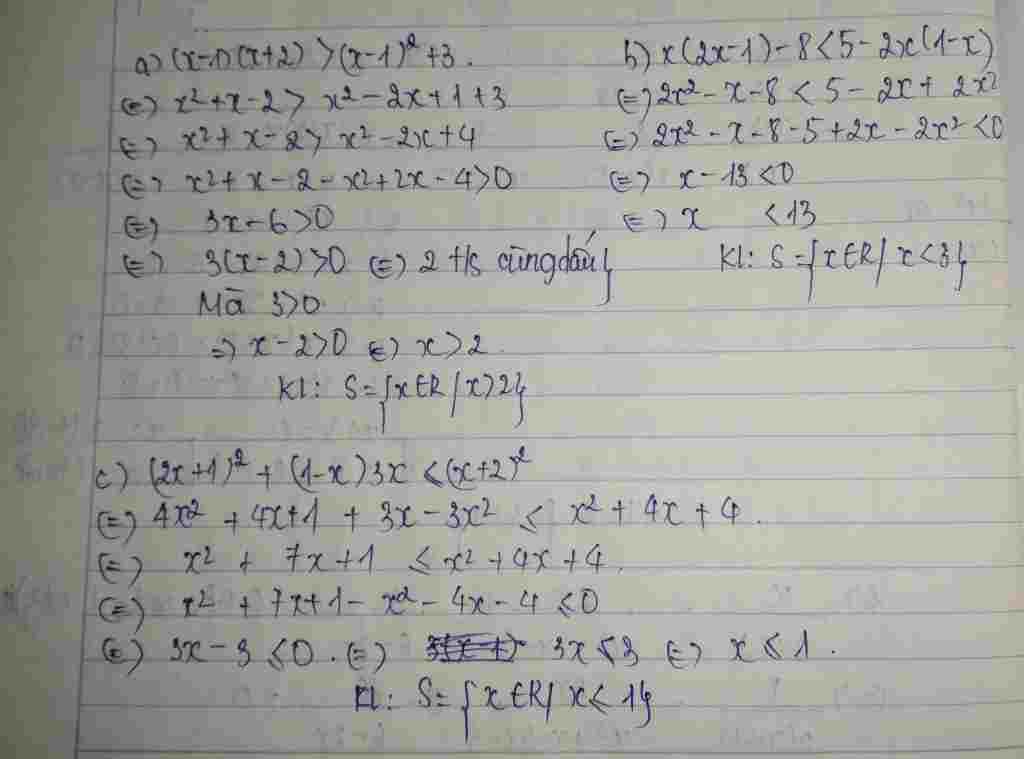 a) (x-1)(x+2) > (x-1)² +3.
(=) x²+x-2 > x²-2x+1+3
(=) x²+x-2 > x²-2x+4
(=) x²+x-2-x²+2x-4>0
(=) 3x-6>0
(=) 3(x-2)>0 (=) 2 t/s cùng dấu}
Mà 3>0
=) x-2>0 (=) x>2
Kl: S={x∈R/x>2}
b) x(2x-1)-8<5-2x(1-x)
(=) 2x²-x-8<5-2x+2x²
(=) 2x²-x-8-5+2x-2x²<0
(=) x-13<0
(=) x <13
Kl: S={x∈R/x<3}
c) (2x+1)²+(1-x)3x ≤(x+2)²
(=) 4x²+4x+1+3x-3x² ≤ x²+4x+4.
(=) x²+7x+1 ≤x²+4x+4.
(=) x²+7x+1-x²-4x-4 ≤0
(=) 3x-3 ≤0. (=) 3x≤3 (=) x≤1.
Kl: S={x∈R/x≤1}